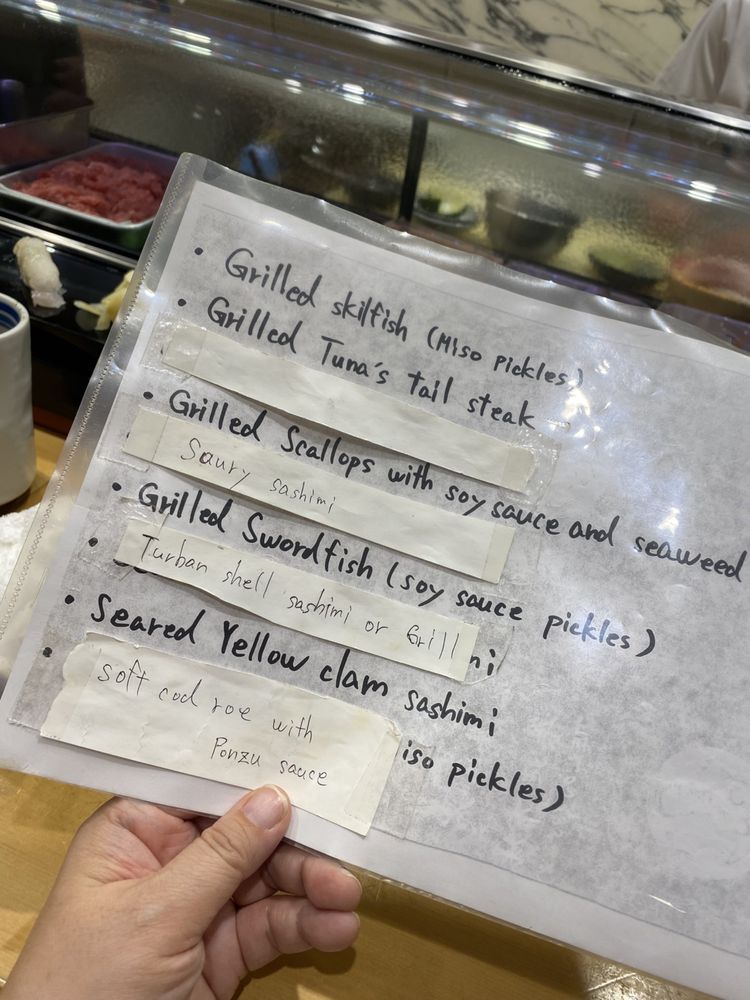 • Grilled skilfish (Miso pickles)
• Grilled Tuna's tail steak
• Grilled Scallops with soy sauce and seaweed
Saury sashimi
• Grilled Swordfish (soy sauce pickles)
• Turban shell sashimi or Grill mi
• Seared Yellow clam sashimi
• soft cod roe with
Ponzu sauce iso pickles)